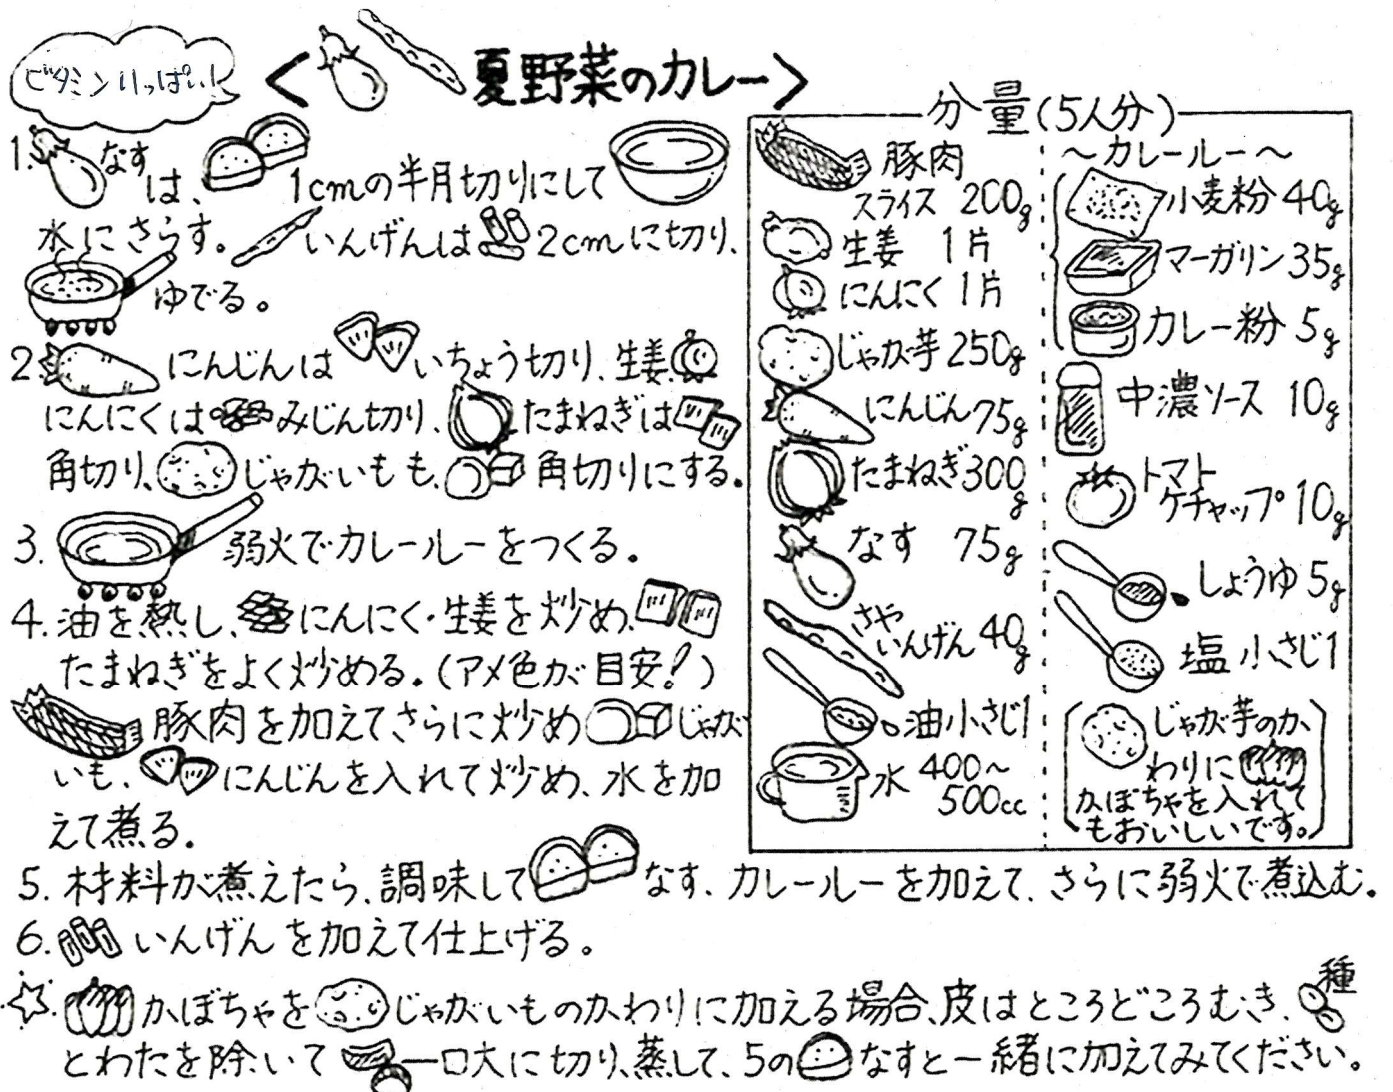 ビタミンいっぱい!
<夏野菜のカレー>
1. なすは、1cmの半月切りにして
水にさらす。いんげんは2cmに切り、
ゆでる。
2. にんじんはいちょう切り、生姜、
にんにくはみじん切り、たまねぎは
角切り、じゃがいもも、角切りにする。
3. 弱火でカレールーをつくる。
4. 油を熱し、にんにく・生姜を炒め、
たまねぎをよく炒める。(アメ色が目安!)
豚肉を加えてさらに炒めじゃが
いも、にんじんを入れて炒め、水を加
えて煮る。
5. 材料が煮えたら、調味してなす、カレールーを加えて、さらに弱火で煮込む。
6. いんげんを加えて仕上げる。
☆ かぼちゃをじゃがいものかわりに加える場合、皮はところどころむき、種
とわたを除いて一口大に切り、蒸して、5のなすと一緒に加えてみてください。
分量(5人分)
豚肉
スライス 200g
生姜 1片
にんにく 1片
じゃが芋 250g
にんじん 75g
たまねぎ 300g
なす 75g
さや
いんげん 40g
油 小さじ1
水 400~
500cc
~カレールー~
小麦粉 40g
マーガリン 35g
カレー粉 5g
中濃ソース 10g
トマト
ケチャップ 10g
しょうゆ 5g
塩 小さじ1
じゃが芋のか
わりに
かぼちゃを入れて
もおいしいです。